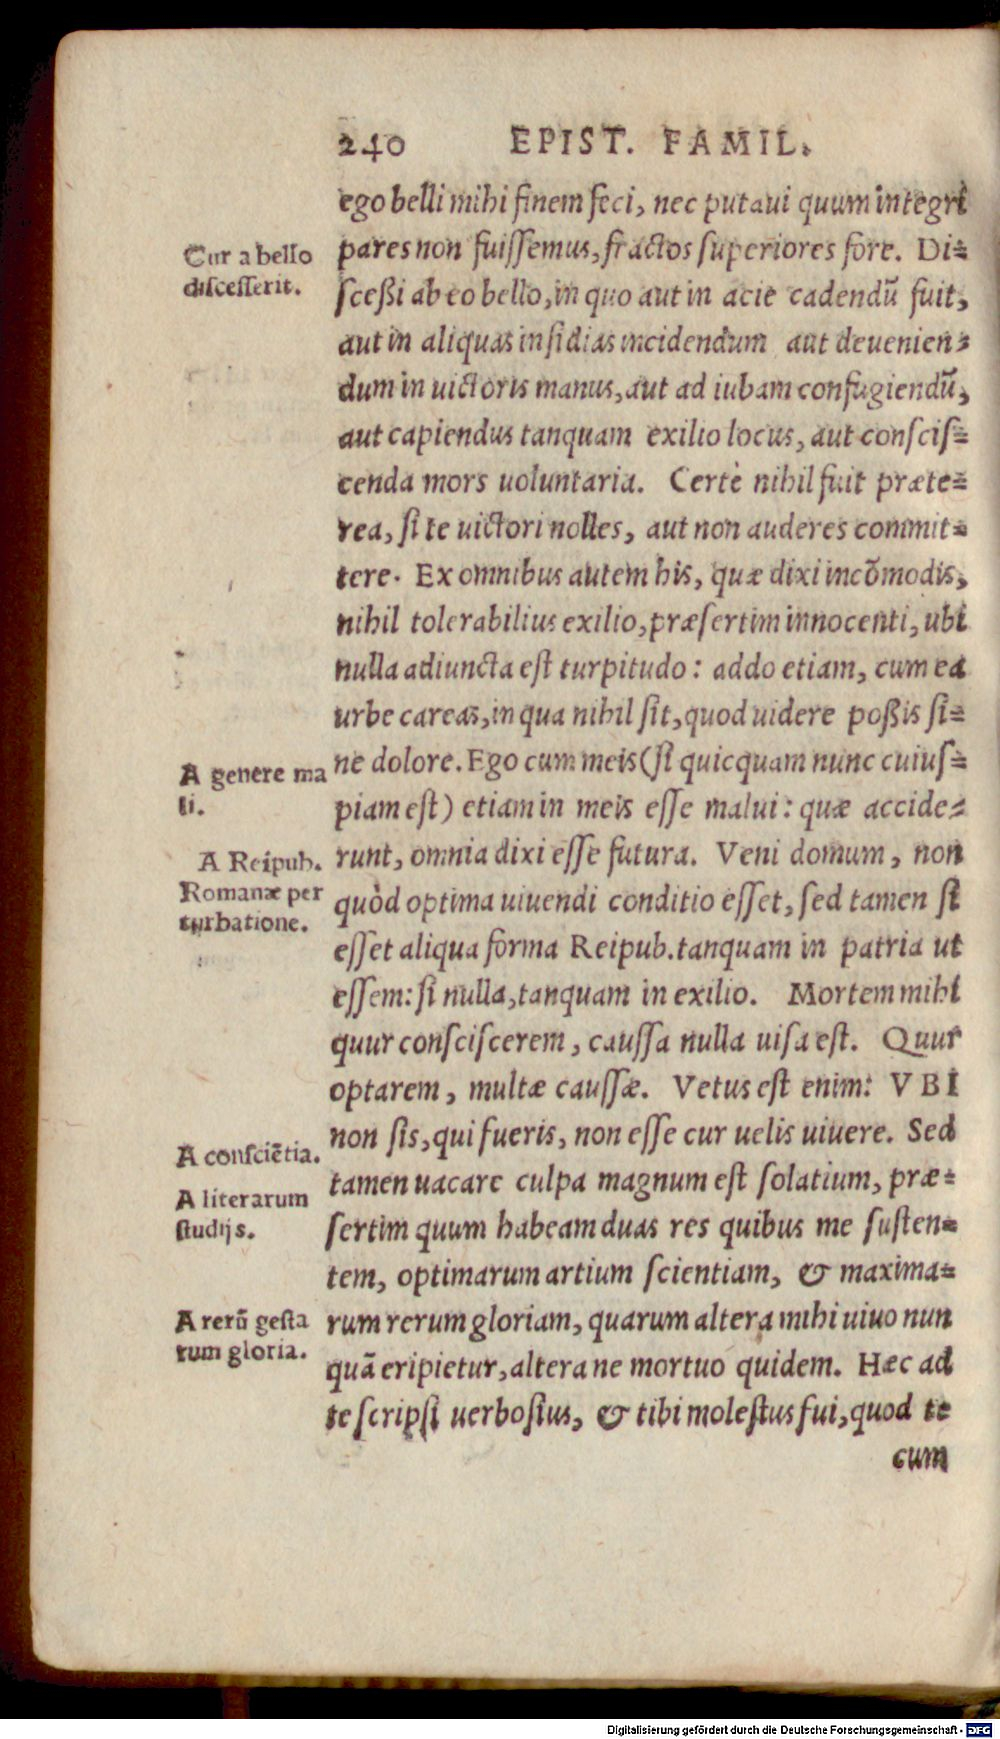 240 EPIST. FAMIL.
ego belli mihi finem feci, nec putaui quum integri
Cur a bello
discesserit.
pares non fuissemus, fractos superiores fore. Di-
scessi ab eo bello, in quo aut in acie cadendũ fuit,
aut in aliquas insidias incidendum aut deuenien-
dum in uictoris manus, aut ad iubam confugiendũ,
aut capiendus tanquam exilio locus, aut conscis-
cenda mors uoluntaria. Certè nihil fuit præte-
rea, si te uictori nolles, aut non auderes commit-
tere. Ex omnibus autem his, quæ dixi incõmodis,
nihil tolerabilius exilio, præsertim innocenti, ubi
nulla adiuncta est turpitudo: addo etiam, cum ea
urbe careas, in qua nihil sit, quod uidere possis si-
A genere ma
li.
ne dolore. Ego cum meis (si quicquam nunc cuius-
piam est) etiam in meis esse malui: quæ accide-
A Reipub.
Romanæ per
turbatione.
runt, omnia dixi esse futura. Veni domum, non
quòd optima uiuendi conditio esset, sed tamen si
esset aliqua forma Reipub. tanquam in patria ut
essem: si nulla, tanquam in exilio. Mortem mihi
quur consciscerem, caussa nulla uisa est. Quur
optarem, multæ caussæ. Vetus est enim: VBI
non sis, qui fueris, non esse cur uelis uiuere. Sed
A consciẽtia.
tamen uacare culpa magnum est solatium, præ-
A literarum
studijs.
sertim quum habeam duas res quibus me susten-
tem, optimarum artium scientiam, & maxima-
A rerũ gesta
rum gloria.
rum rerum gloriam, quarum altera mihi uiuo nun
quã eripietur, altera ne mortuo quidem. Hæc ad
te scripsi uerbosius, & tibi molestus fui, quod te
cum
Digitalisierung gefördert durch die Deutsche Forschungsgemeinschaft - DFG